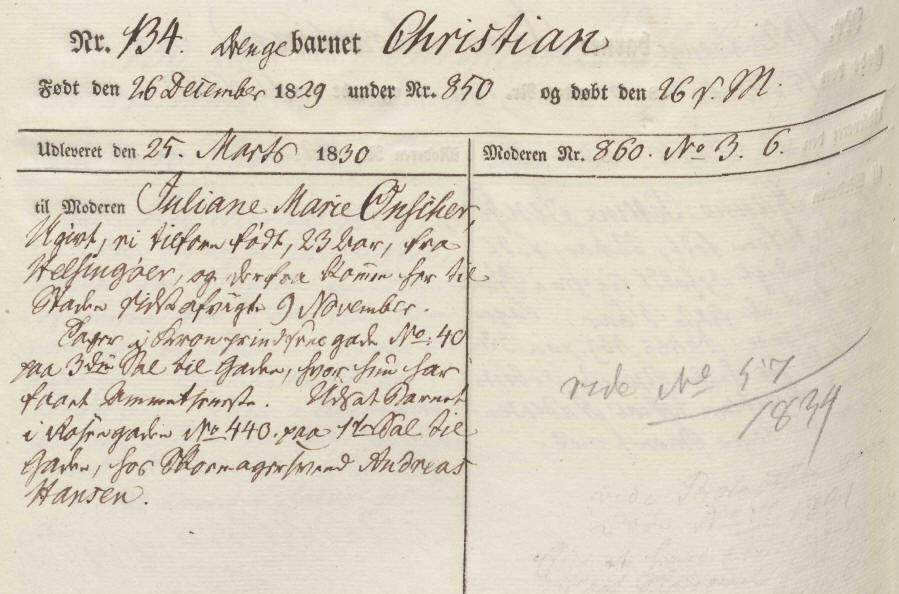 Nr. 134. Drengebarnet Christian
Født den 26 December 1829 under Nr. 850 og døbt den 26 s. M.
Udleveret den 25. Marts 1830
Moderen Nr. 860. No 3. 6.
til Moderen Juliane Marie
Ugivt, ei tilforn født, 23 Aar, fra
Helsingøer, og derfra kommen her til
Staden sidstafvigte 9 November.
i Kronprindsensgade No. 40
paa 3die Sal til Gaden, hvor hun har
faaet Ammetjeneste. Udsat Barnet
i Rosengaden No 440. paa 1te Sal til
Gaden, hos Skomagersvend Andreas
Hansen.
vide No 57
1834